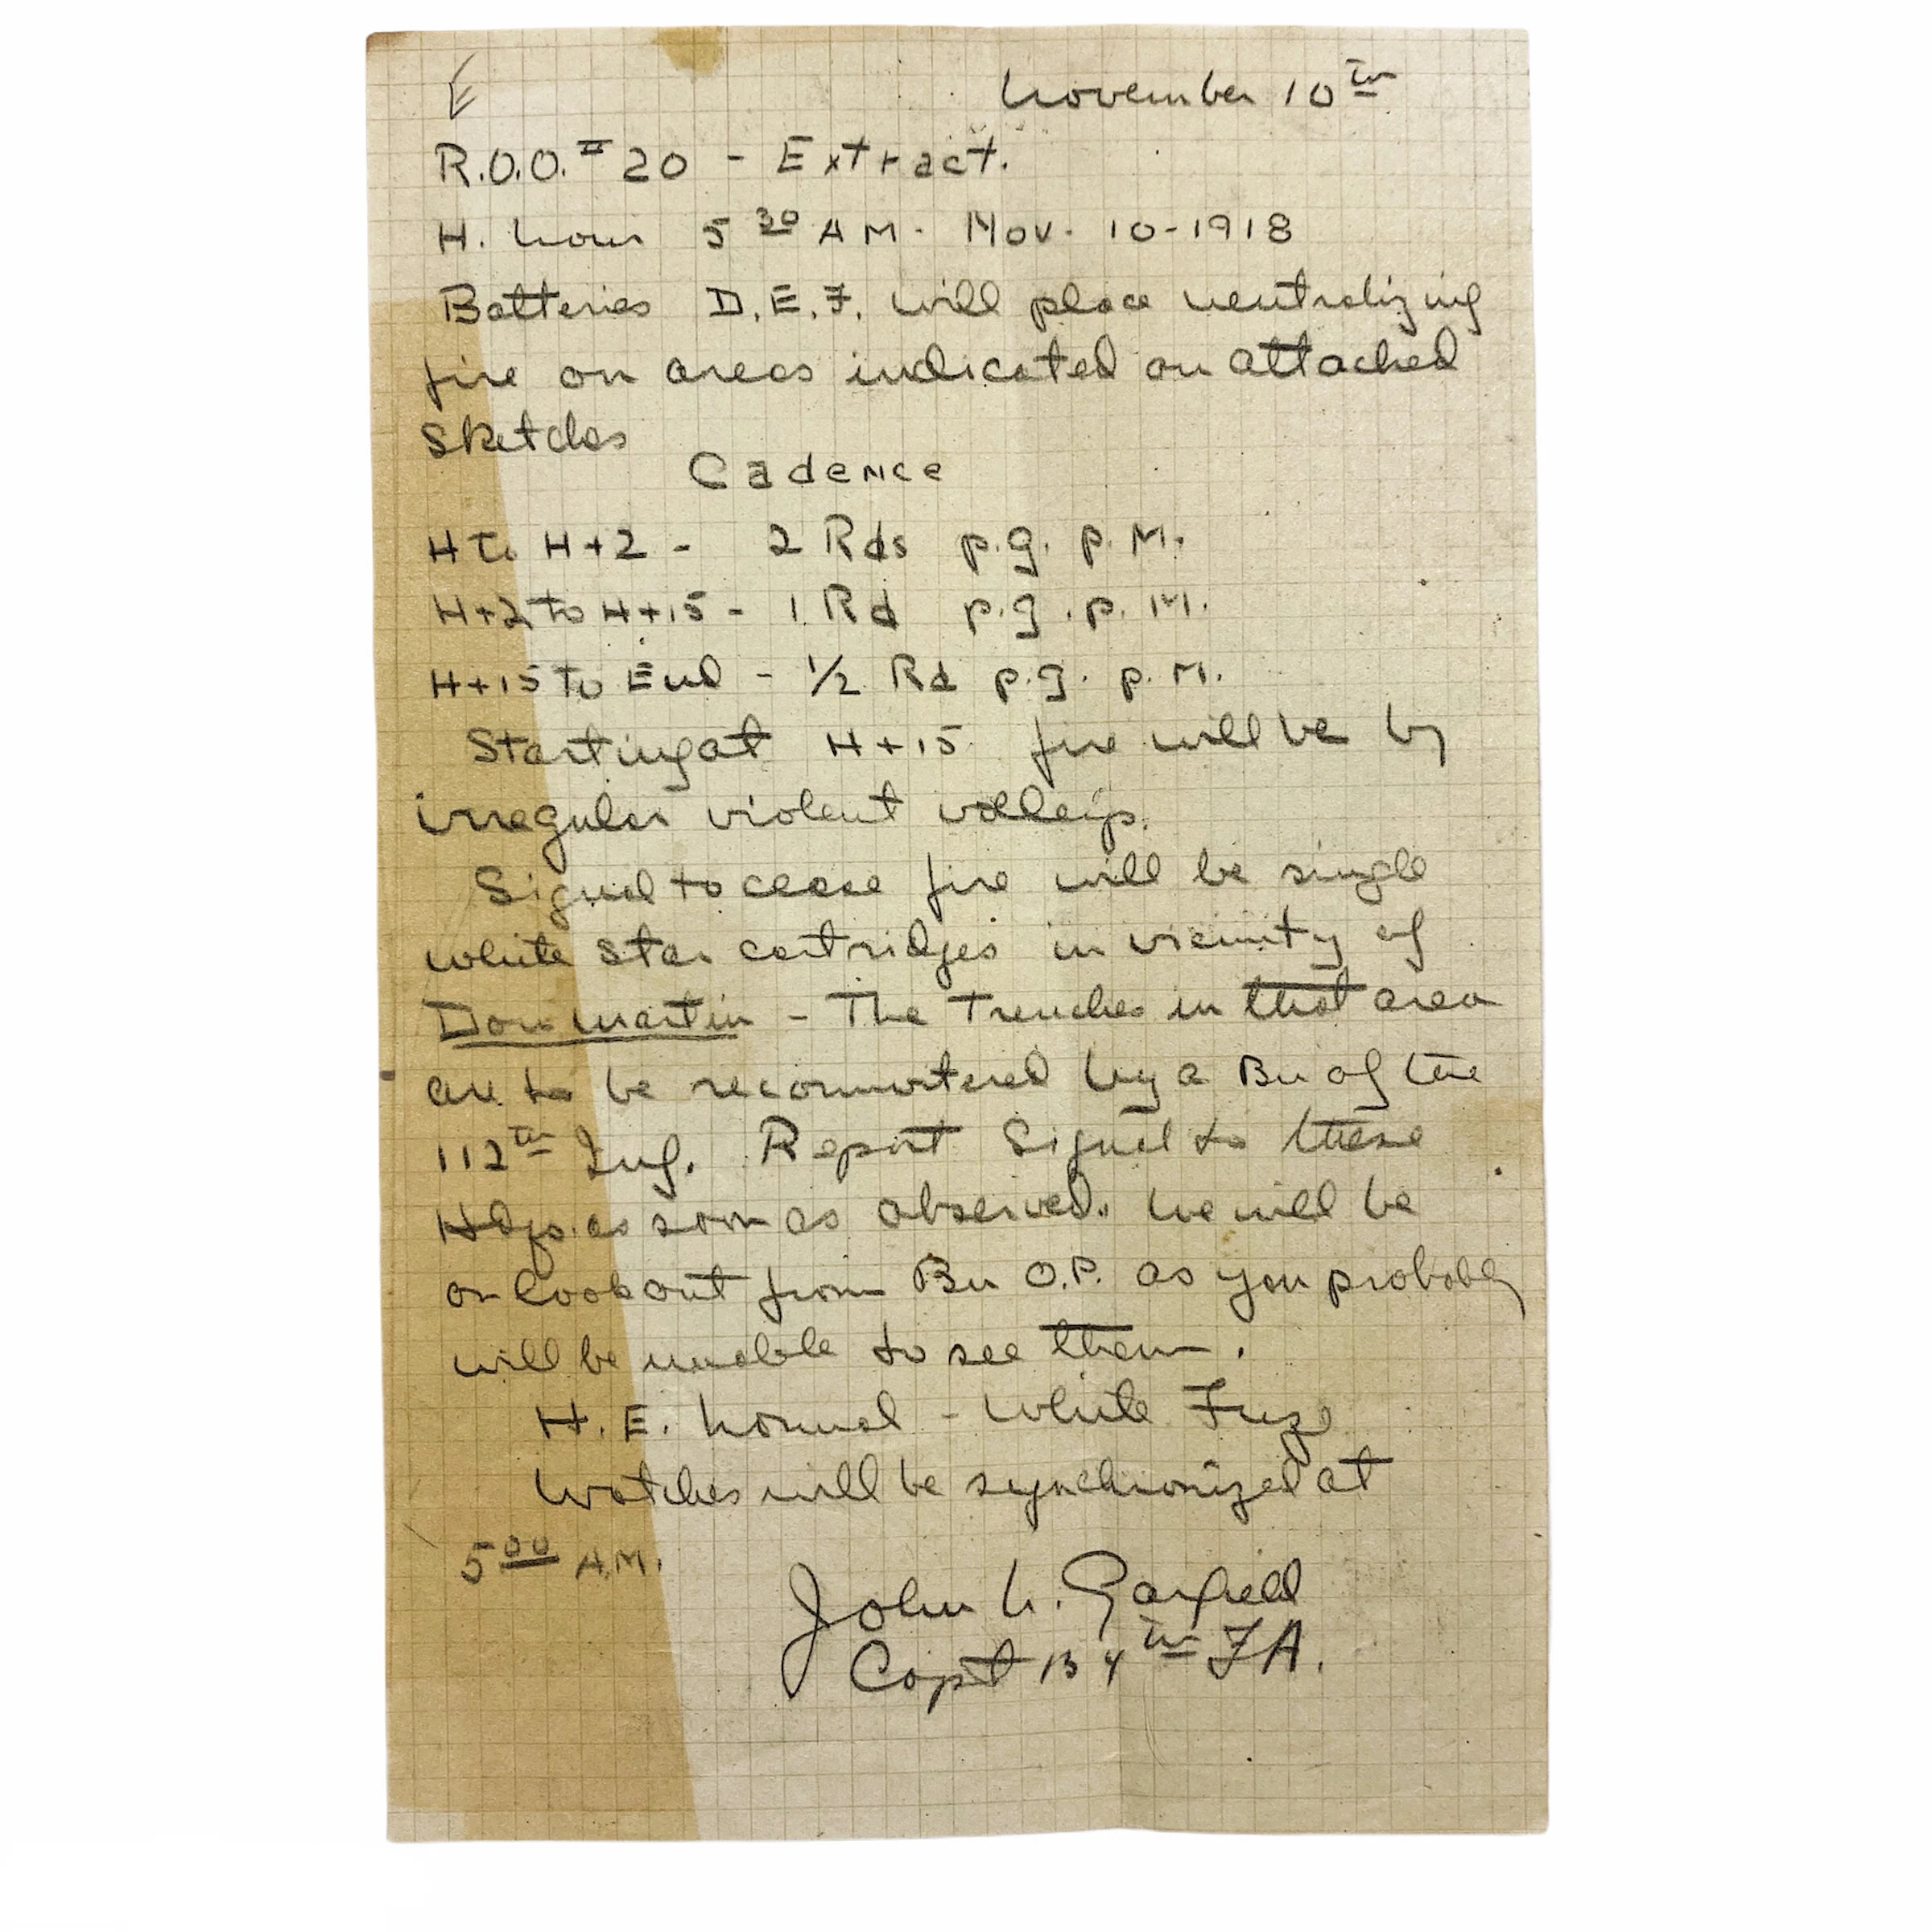 E
November 10th
R.O.O. # 20 - Extract.
H. hour 5 30 A M. Nov. 10-1918
Batteries D.E.F. will place neutralizing
fire on areas indicated on attached
Sketches
Cadence
H to H+2 - 2 Rds p.g. p. M.
H+2 to H+15 - 1 Rd p.g. p. M.
H+15 to End - 1/2 Rd p.g. p. M.
Starting at H+15 fire will be by
irregular violent volleys.
Signal to cease fire will be single
white star cartridges in vicinity of
Dommartin - The Trenches in that area
are to be reconnoitered by a Bn of the
112th Inf. Report Signal to these
Hdqs. as soon as observed. We will be
on lookout from Bn O.P. as you probably
will be unable to see them.
H.E. Normal - White Fuze
Watches will be synchronized at
5 00 A.M.
John N. Garfield
Capt 134th FA.